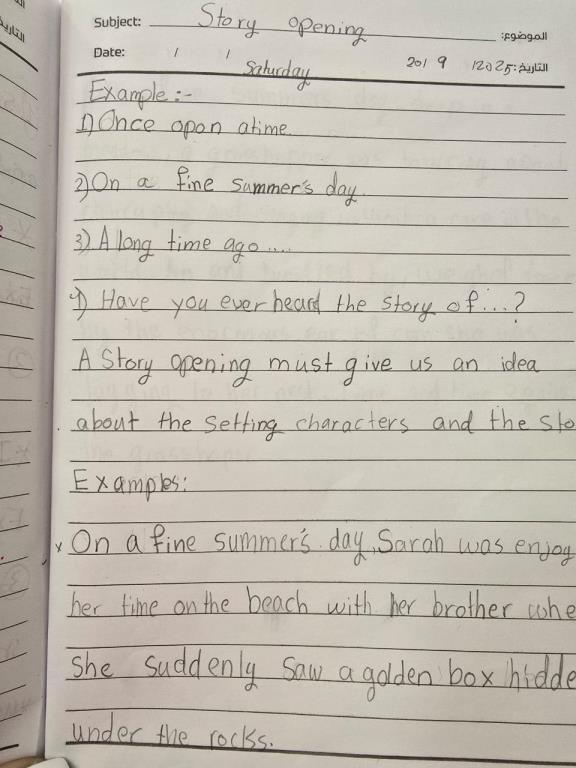 Subject: Story opening الموضوع:
Date: / / Saturday 20/ 9 /2025 التاريخ:
Example:-
1) Once opon atime
2) On a fine summer's day.
3) A long time ago....
4) Have you ever heard the story of...?
A Story opening must give us an idea
about the setting characters and the sto
Examples:
x On a fine summer's day, Sarah was enjoy
her time on the beach with her brother whe
She suddenly saw a golden box hidde
under the rocks.